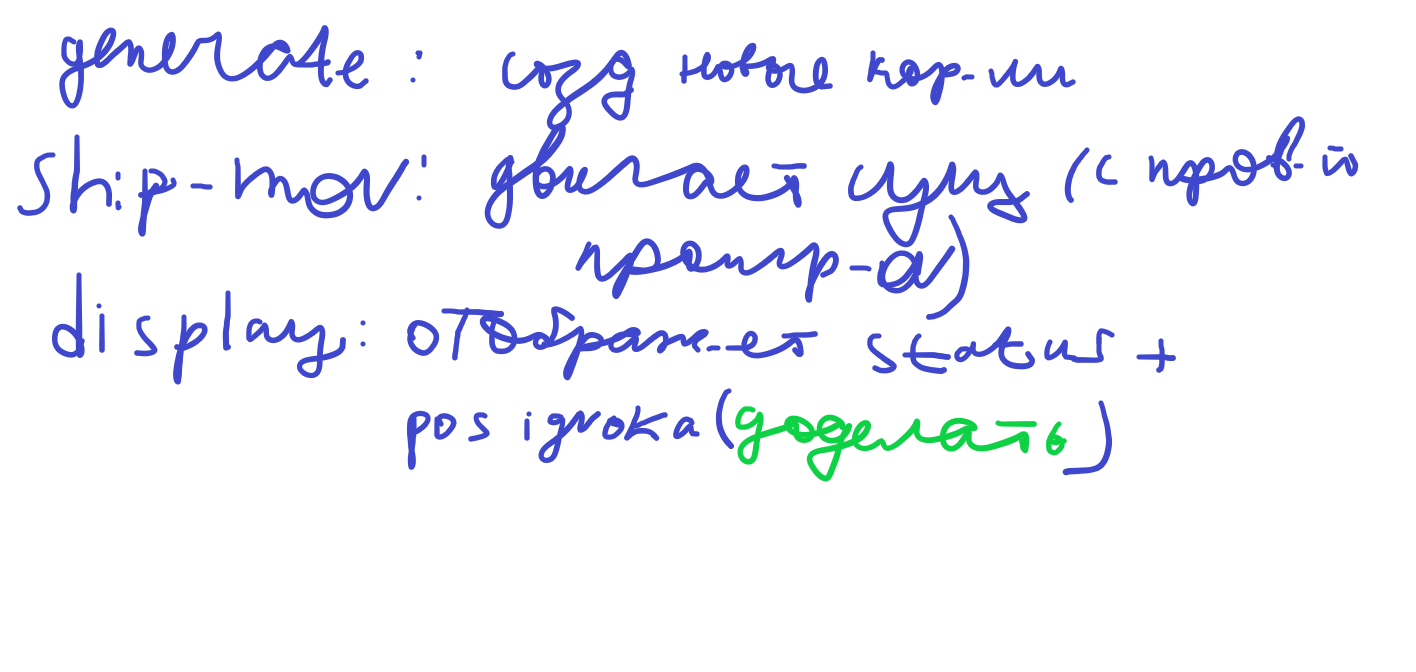 generate: созд новые кор-ми
ship-mov: двигает сущ (с пров-й
простр-а)
display: отображ-ет status +
pos igroka (доделать)